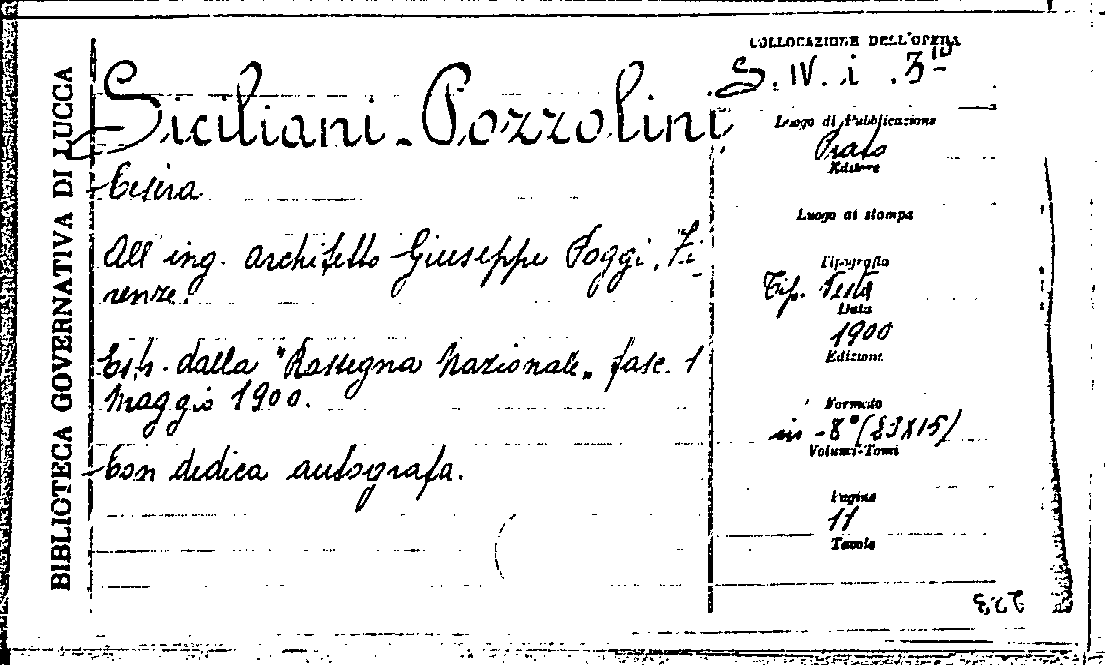 BIBLIOTECA GOVERNATIVA DI LUCCA
Siciliani-Pozzolini
Cesira
All'ing. architetto Giuseppe Poggi, Fi-
renze.
Estr. dalla "Rassegna Nazionale" fasc. 1
Maggio 1900.
Con dedica autografa.
COLLOCAZIONE DELL'OPERA
S. IV. i. 3
Luogo di Pubblicazione
Prato
Editore
Luogo di stampa
Tipografia
Tip. Vestri
Data
1900
Edizione
Formato
in-8° (23X15)
Volumi-Tomi
Pagine
11
Tavole